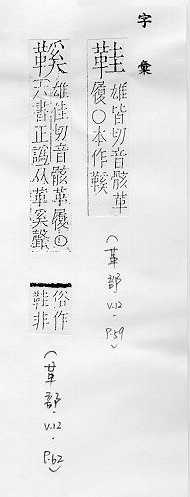 字彙
鞋
雄皆切音骸革
履○本作鞵
(革部
V.12.
P.59)
鞵
雄佳切音骸革履○
六書正譌从革奚聲
俗作
鞋非
(革部
V.12.
P.62)